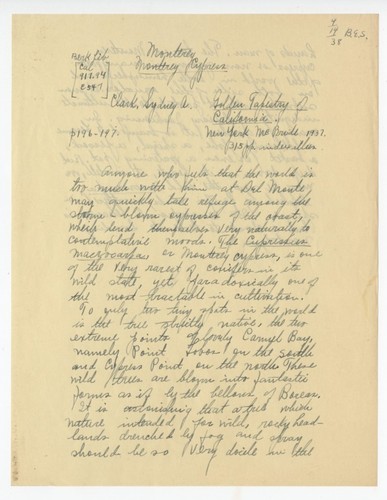 4/19/38 B.E.S.
Berk Pub
Cal
917.94
C547
Monterey
Monterey Cypress
Clark, Sydney A. Golden Tapestry of
California.
New York McBride 1937.
p196-197. 315 pp.
Anyone who feels that the world is
too much with him at Del Monte
may quickly take refuge among the
storm blown cypresses of the coast,
which lend themselves very naturally to
contemplative moods. The Cupressus
macrocarpa or Monterey cypress, is one
of the very rarest of conifers in its
wild state, yet paradoxically one of
the most tractable in cultivation.
To only two tiny spots in the world
is the tree strictly native, the two
extreme points of lovely Carmel Bay,
namely Point Lobos on the south
and Cypress Point on the north. These
wild trees are blown into fantastic
forms as if by the bellows of Boreas.
It is astonishing that a tree which
nature intended for wild, rocky head-
lands drenched by fog and spray
should be so very docile in the